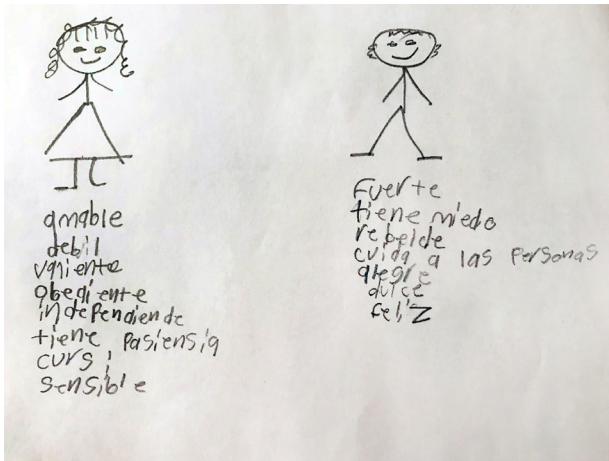 amable
debil
valiente
obediente
independiende
tiene pasiensia
cursi
sensible
fuerte
tiene miedo
rebelde
cuida a las personas
alegre
dulce
feliz